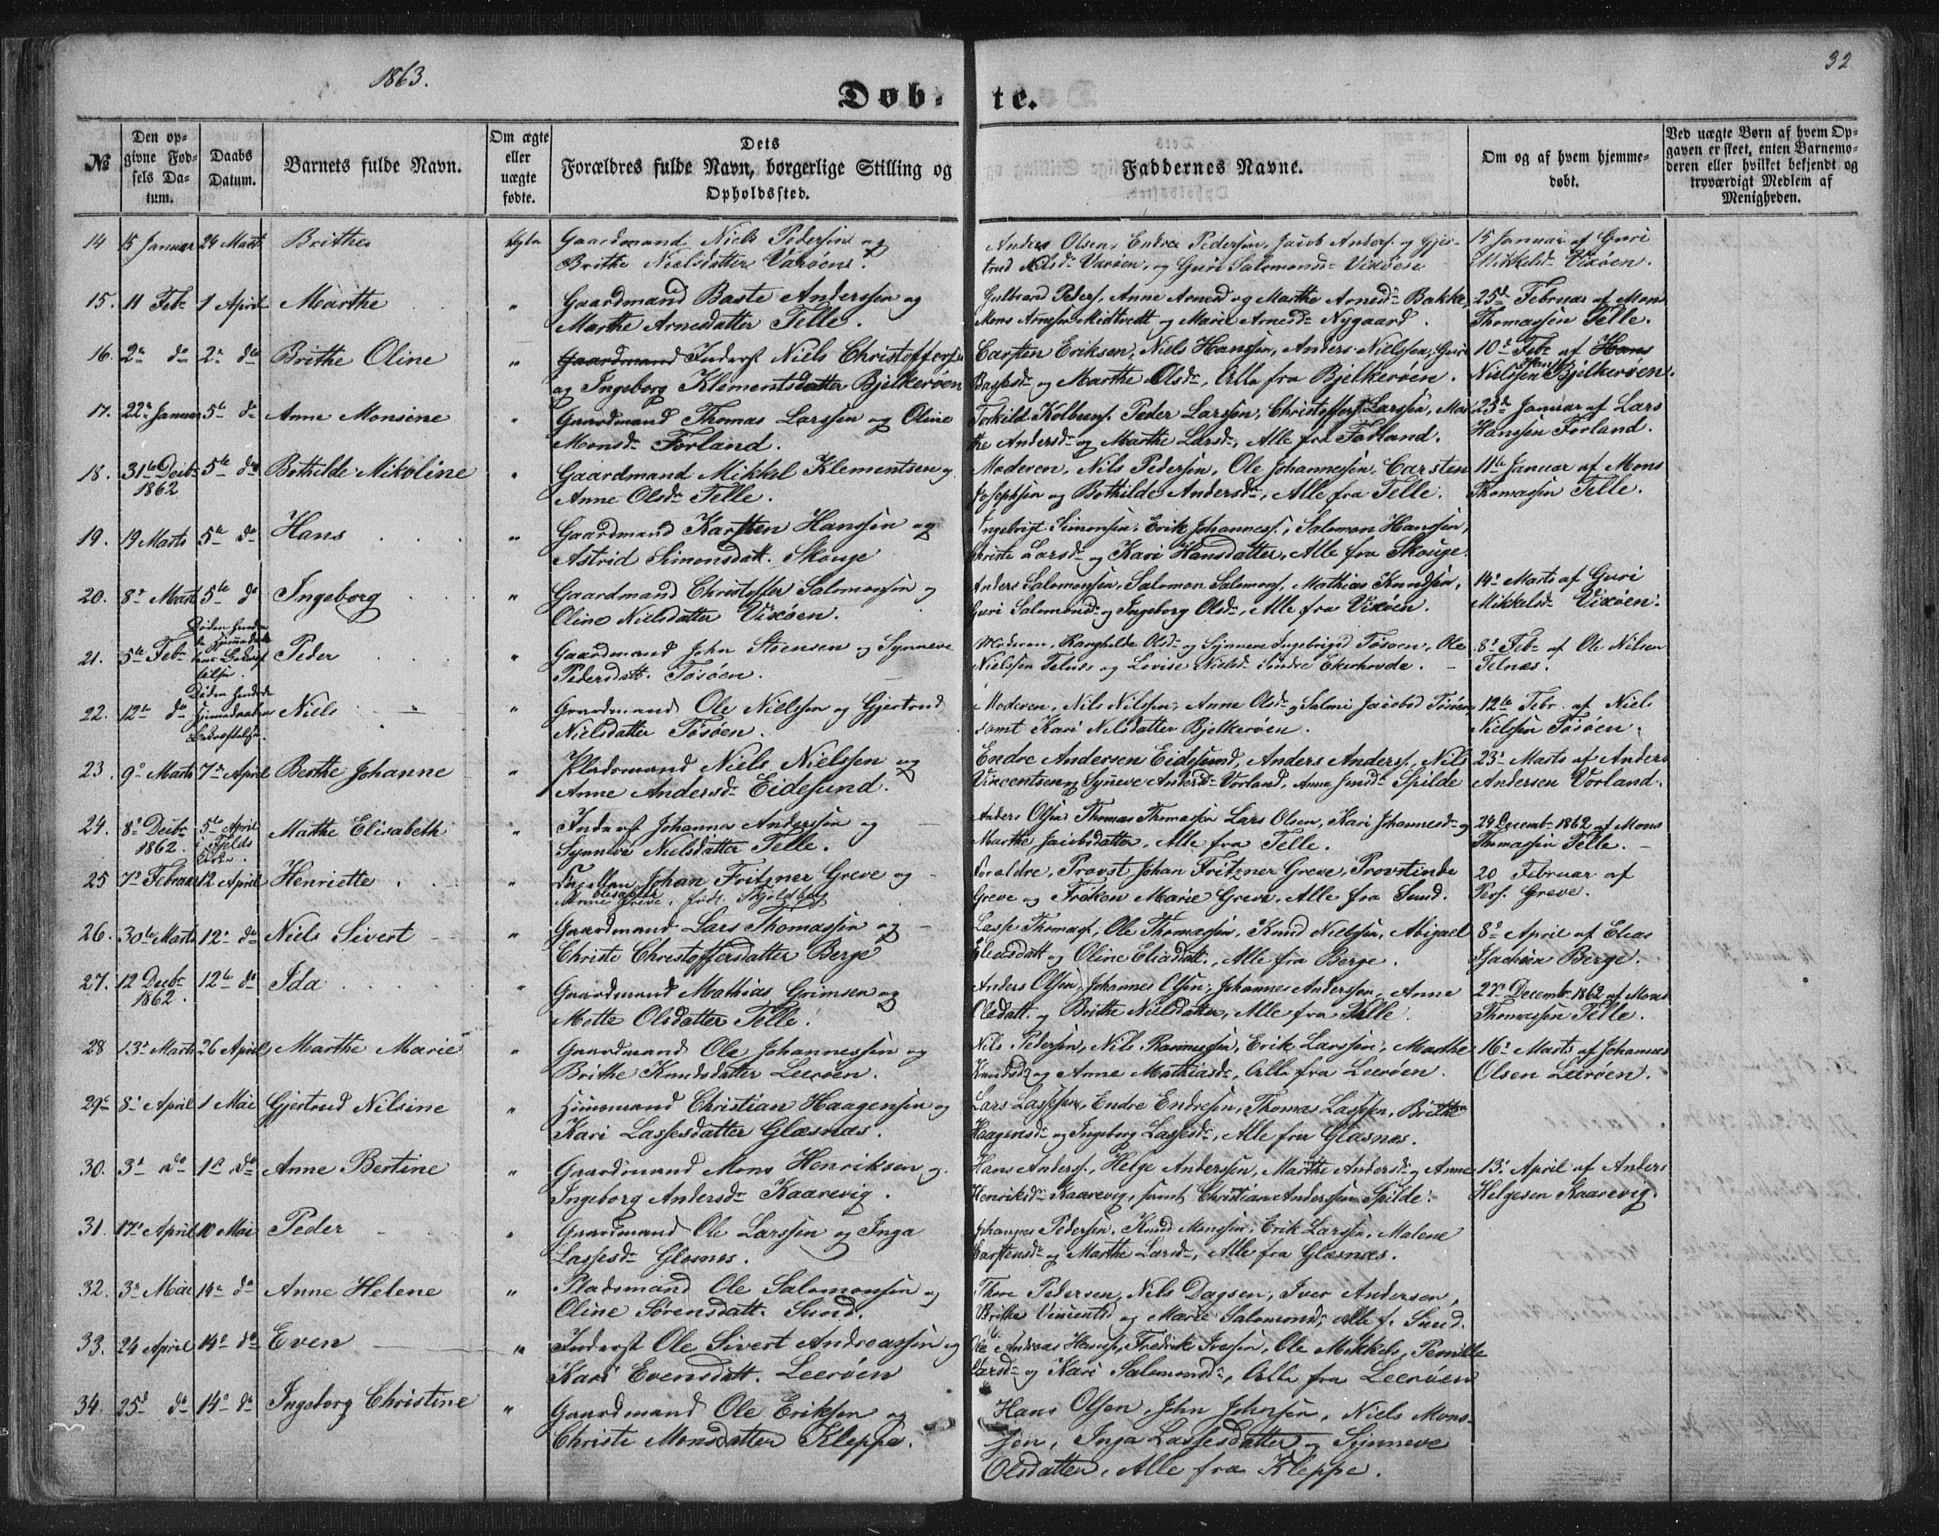 1863.
32
Døbte.
№
Den opgivne Fødsels Datum.
Daabs Datum.
Barnets fulde Navn.
Om ægte eller uægte fødte.
Dets Forældres fulde Navn, borgerlige Stilling og Opholdssted.
Faddernes Navne.
Om og af hvem hjemmedøbt.
Ved uægte Børn af hvem Opgaven er skeet, enten Barnemoderen eller hvilket bekjendt og troværdigt Medlem af Menigheden.
14 15 Januar 24 Marts Brithe Ægte Gaardmand Niels Pedersen og Anders Olsen, Endre Pedersen, Jacob Anders. og Gjer- 15 Januar af Guri
Brithe Nielsdatter Varøen. trud Nilsd. Varøen, og Guri Salomonsd. Vixøen Mikkelsd. Vixøen.
15. 11 Feb. 1 April Marthe " Gaardmand Baste Anderssen og Gulbrand Peders, Anne Arnesd og Marthe Arnesd. Bakke, 25d Februar af Mons
Marthe Arnesdatter Telle. Mons Arnesen Midtvedt og Marie Arnesd. Nygaard. Thomassen Telle.
16. 2. do 2. do Brithe Oline " Gaardmand Inderst Niels Christoffers. Carsten Eriksen, Niels Hanssen, Anders Nielssen, Guri 10. Feb. af Hans
og Ingeborg Klementsdatter Bjelkerøen og Marthe Olsd., Alle fra Bjelkerøen. Nielssen Bjelkerøen.
17. 22. Januar 5te do Anne Monsine " Gaardmand Thomas Larssen og Oline Torkild Kolbens. Peder Larssen, Christoffer Larssen, Mar- 23d Januar af Lars
Monsd. Forland. the Andersd. og Marthe Larsd., Alle fra Forland. Hanssen Forland.
18. 31te Decb. 5te do Bothilde Nikoline " Gaardmand Mikkel Klementsen og Moderen, Nils Pedersen, Ole Johannessen, Carsten 11te Januar af Mons
1862 Anne Olsd. Telle. Josephsen og Bothilde Andersd., Alle fra Telle. Thomassen Telle.
19. 19 Marts 5te do Hans " Gaardmand Karsten Hanssen og Ingebrigt Simonsen, Erik Johanness., Salomon Hanssen,
Astrid Simonsdatt. Skouge Christe Larsd. og Kari Hansdatter, Alle fra Skouge.
20. 8. Marts 5te do Ingeborg " Gaardmand Christoffer Salomonsen og Anders Salomonsen, Salomon Salomons., Mathias Knudsen, 14. Marts af Guri
Oline Nielsdatter Vixøen. Guri Salomonsd. og Ingeborg Olsd., Alle fra Vixøen. Mikkelsd. Vixøen.
21. 5te Feb. Peder " Gaardmand John Steensen og Synneve Moderen, Ranghilde Olsd. og Synneve Ingebrigtsd Tøsøen, Ole 8. Feb. af Ole Nilsen
Pedersdatt. Tøsøen. Nielssen Telnæs og Lovise Nielsd. Indre Ekerhovde. Telnæs.
22. 12te do Niels " Gaardmand Ole Nielssen og Gjertrud Moderen, Nils Nilssen, Anne Olsd. og Salmi Jacobsd Tøsøen, 12te Febr. af Niels
Nielsdatter Tøsøen. samt Kari Nilsdatter Bjelkerøen. Nielssen Tøsøen.
23. 9. Marts 7. April Berthe Johanne " Pladsmand Niels Nielssen og Endre Andersen Eidesund, Anders Anders., Nils 23. Marts af Anders
Anne Andersd. Eidesund. Vincentsen og Synneve Andersd. Vorland, Anne Spilde Andersen Vorland.
24. 8. Decb. 5te April Marthe Elisabeth " Inderst Johannes Anderssen og Anders Olsen, Thomas Thomassen, Lars Olsen, Kari Johannesd. og 29 Decemb. 1862 af Mons
1862. i Fjelds Kirke. Synneve Nielsdatter Telle. Marthe Jacobsdatter, Alle fra Telle. Thomassen Telle.
25 7. Februar 12 April Henriette " Capellan Johan Fritzner Greve og Forældre, Provst Johan Fritzner Greve, Provstinde 20 Februar af
Greve, født Skjoldborg Greve og Frøken Marie Greve, Alle fra Sund. Pers. Greve.
26. 30te Marts 12. do Niels Sivert " Gaardmand Lars Thomassen og Lasse Thomass., Ole Thomassen, Knud Nielssen, Abigael 8. April af Elias
Christe Christoffersdatter Berge Eliasdatt og Oline Eliasdatt., Alle fra Berge. Berge.
27. 12 Decb. 12te do Ida " Gaardmand Mathias Grimsen og Anders Olsen, Johannes Olsen, Johannes Anderssen, Anne 27. Decemb. 1862 af Mons
1862. Mette Olsdatter Telle. Olsdatt. og Brithe Nielsdatter, Alle fra Telle. Thomassen Telle.
28 13. Marts 26 April Marthe Marie " Gaardmand Ole Johannessen og Nils Pedersen, Nils Rasmussen, Erik Larssen, Marthe 16. Marts af Johannes
Brithe Knudsdatter Leerøen. Knudsd. og Anne Mathiasd., Alle fra Leerøen. Olsen Leerøen.
29. 8. April 1 Mai Gjertrud Nilsine " Huusmand Christian Haagensen og Lars Lassesen, Endre Endresen, Thomas Lassesen, Brithe
Kari Lassesdatter Glæsnæs. Haagensd. og Ingeborg Lassesd., Alle fra Glæsnæs.
30. 3. do 1. do Anne Bertine " Gaardmand Mons Henriksen og Hans Anders., Helge Anderssen, Marthe Andersd. og Anne 13. April af Anders
Ingeborg Andersd. Kaarevig. Henriksd. Kaarevig, samt Christian Anderssen Spilde. Helgesen Kaarevig.
31. 17. April 10 Mai Peder " Gaardmand Ole Larssen og Inga Johannes Pedersen, Knud Monssen, Erik Larssen, Malene
Lassesd. Glæsnæs. Carstensd. og Marthe Larsd., Alle fra Glæsnæs.
32. 3. Mai 14. do Anne Helene " Pladsmand Ole Salomonsen og Thore Pedersen, Nils Dagsen, Iver Andersen,
Oline Sørensdatt. Sund. Brithe Vincentsd og Marie Salomonsd, Alle f. Sund.
33. 24 April 14. do Even " Inderst Ole Sivert Andreassen og Ole Andreas Hanss, Fredrik Iverssen, Ole Mikkels, Pernille
Kari Evensdatt. Leerøen Larsd. og Kari Salomonsd., Alle fra Leerøen
34. 25d do 14. do Ingeborg Christine " Gaardmand Ole Eriksen og Hans Olsen, John Johnsen, Niels Mons-
Christe Monsdatter Kleppe. sen, Inga Lassesdatter og Synneve
Olsdatter, Alle fra Kleppe.